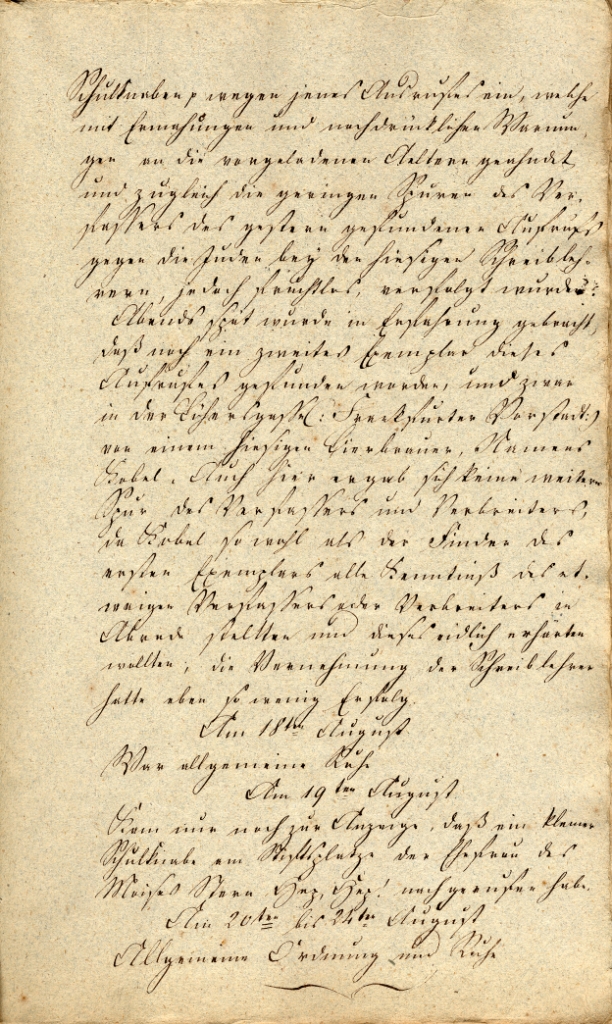 Schulknaben, wegen jenes Ausrufes ein, welche
mit Ermahnungen und nachdrücklichen Warnun-
gen an die vorgeladenen Aeltern geahndet
und zugleich die geringen Spuren des Ver-
fassers des gestern gefundenen Aufrufs
gegen die Juden bey den hiesigen Schreibleh-
rern, jedoch fruchtlos, verfolgt wurden.
Abends spät wurde in Erfahrung gebracht,
daß noch ein zweites Exemplar dieses
Aufrufes gefunden worden, und zwar
in der (: Frankfurter Vorstadt :)
von einem hiesigen Bierbrauer, Namens
Kobel. Auch hier ergab sich keine weitere
Spur des Verfassers und Verbreiters,
da Kobel sowohl als der Finder des
ersten Exemplars alle Kenntniß des et-
waigen Verfassers oder Verbreiters in
Abrede stellten und dieses eidlich erhärten
wollten; die Vernehmung der Schreiblehrer
hatte eben so wenig Erfolg.
Am 18ten August
War allgemeine Ruhe
Am 19ten August
Kam nur noch zur Anzeige, daß ein kleiner
Schulknabe am Stiftsplatze der Ehefrau des
Moises Stern Hep, Hep! nachgerufen habe.
Am 20ten bis 24ten August
Allgemeine Ordnung und Ruhe